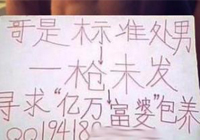 哥是标准处男
一枪未发
寻求"亿万富婆"包养
QQ19418